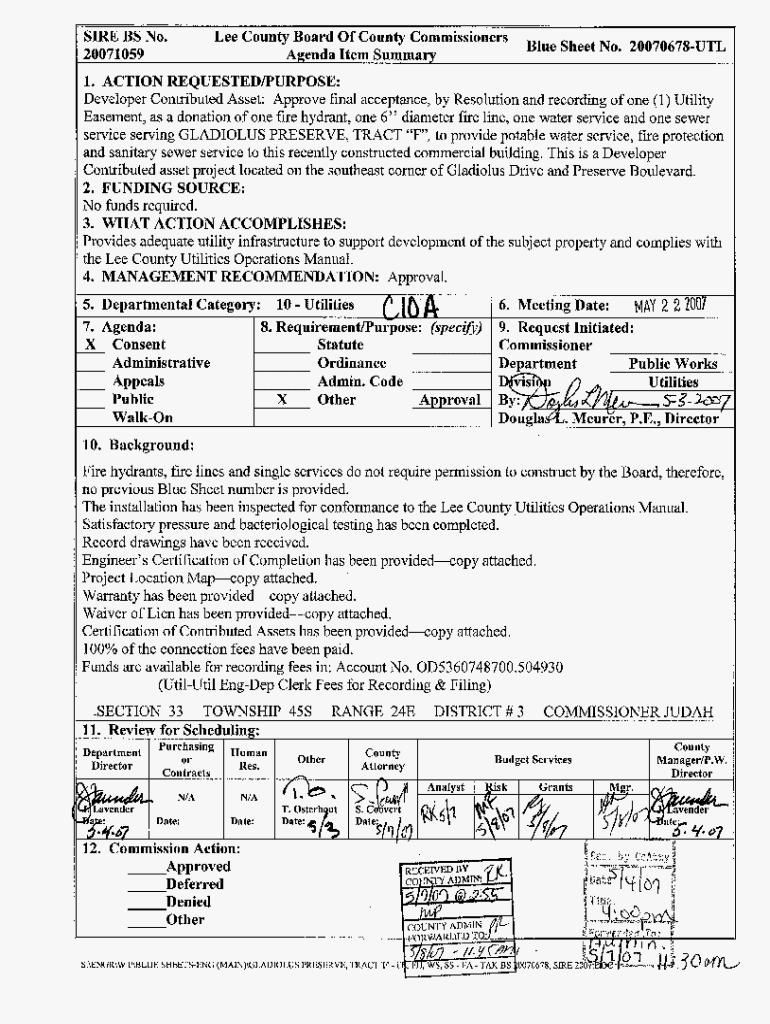 SIRE BS No. Lee County Board Of County Commissioners Blue Sheet No. 20070678-UTL
20071059 Agenda Item Summary
1. ACTION REQUESTED/PURPOSE:
Developer Contributed Asset: Approve final acceptance, by Resolution and recording of one (1) Utility
Easement, as a donation of one fire hydrant, one 6" diameter fire line, one water service and one sewer
service serving GLADIOLUS PRESERVE, TRACT "F", to provide potable water service, fire protection
and sanitary sewer service to this recently constructed commercial building. This is a Developer
Contributed asset project located on the southeast corner of Gladiolus Drive and Preserve Boulevard.
2. FUNDING SOURCE:
No funds required.
3. WHAT ACTION ACCOMPLISHES:
Provides adequate utility infrastructure to support development of the subject property and complies with
the Lee County Utilities Operations Manual.
4. MANAGEMENT RECOMMENDATION: Approval.
5. Departmental Category: 10 - Utilities C10A 6. Meeting Date: MAY 22 2007
7. Agenda: 8. Requirement/Purpose: (specify) 9. Request Initiated:
X Consent Statute Commissioner
Administrative Ordinance Department Public Works
Appeals Admin. Code Division Utilities
Public X Other Approval By: 5-3-2007
Walk-On Douglas L. Meurer, P.E., Director
10. Background:
Fire hydrants, fire lines and single services do not require permission to construct by the Board, therefore,
no previous Blue Sheet number is provided.
The installation has been inspected for conformance to the Lee County Utilities Operations Manual.
Satisfactory pressure and bacteriological testing has been completed.
Record drawings have been received.
Engineer's Certification of Completion has been provided—copy attached.
Project Location Map—copy attached.
Warranty has been provided copy attached.
Waiver of Lien has been provided--copy attached.
Certification of Contributed Assets has been provided—copy attached.
100% of the connection fees have been paid.
Funds are available for recording fees in: Account No. OD5360748700.504930
(Util-Util Eng-Dep Clerk Fees for Recording & Filing)
SECTION 33 TOWNSHIP 45S RANGE 24E DISTRICT # 3 COMMISSIONER JUDAH
11. Review for Scheduling:
Department Director Purchasing or Contracts Human Res. Other County Attorney Budget Services County Manager/P.W. Director
Analyst Risk Grants Mgr.
N/A N/A T.O. RK 5/7 5/8/07
Lavender T. Osterhout S. Coovert Lavender
Date: 5-4-07 Date: Date: Date: 5/3 Date: 5/7/07 Date: 5-4-07
12. Commission Action:
Approved
Deferred
Denied
Other
RECEIVED BY
COUNTY ADMIN:
5/7/07 @ 2:55
COUNTY ADMIN
FORWARDED TO:
5/8/07 - 11:45AM
Rec. by CoAtty
Date: 5/4/07
Time: 4:00pm
Forwarded To:
Admin.
5/7/07 11:30am